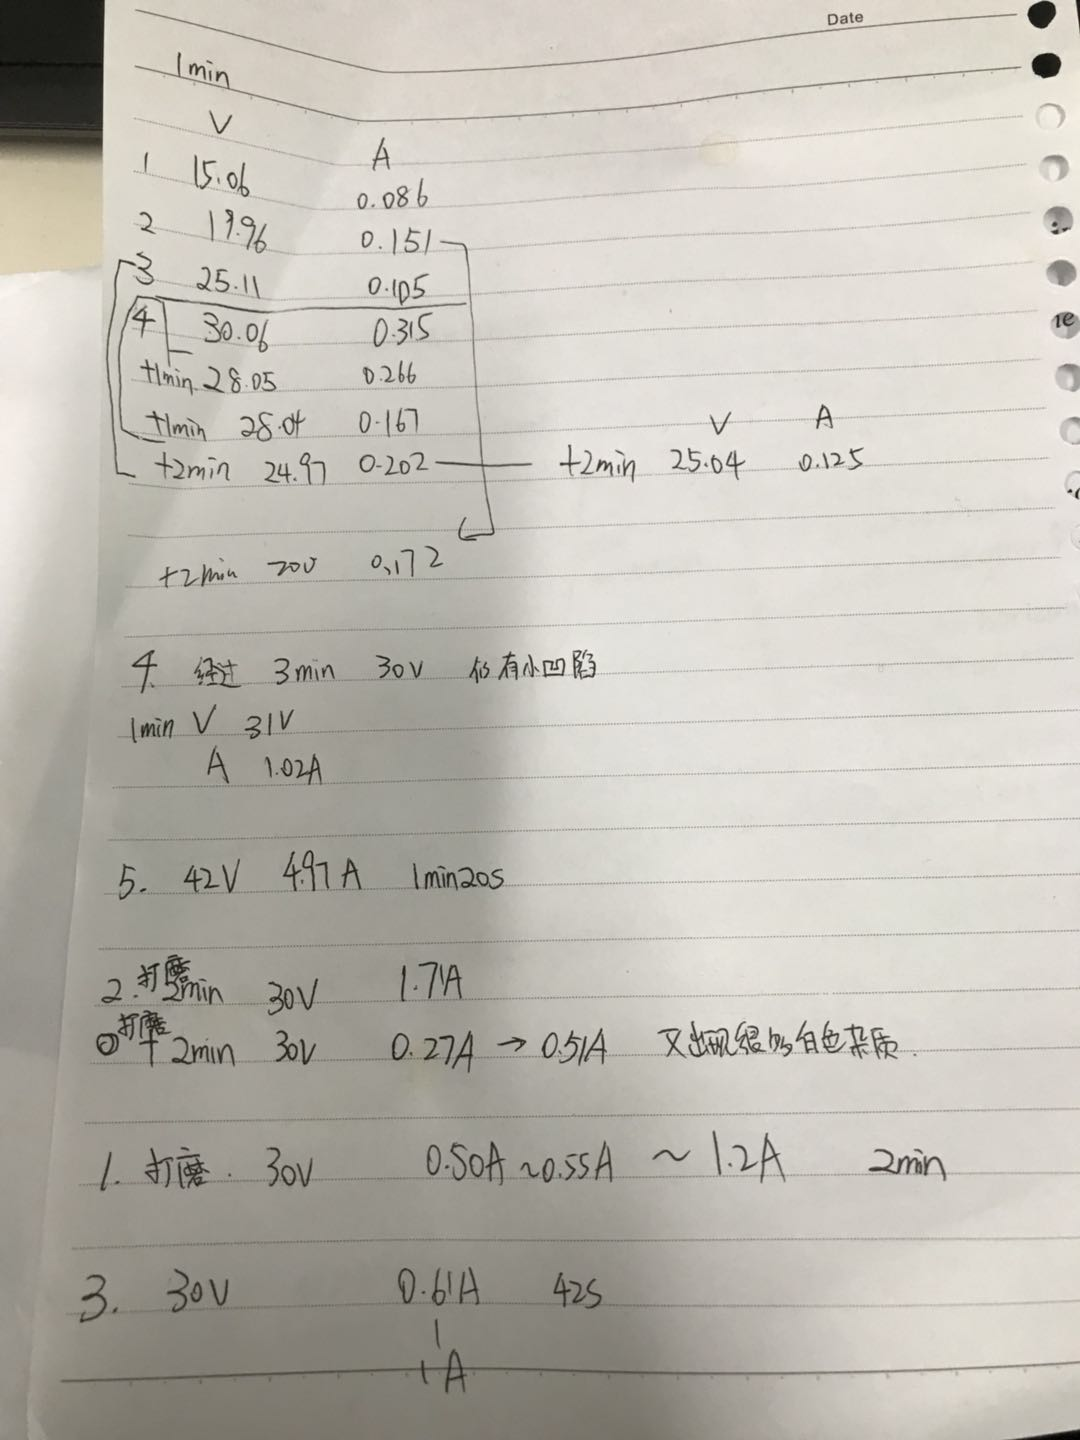 Date
1min
V A
1 15.06 0.086
2 19.96 0.151
3 25.11 0.105
4 30.06 0.315
+1min 28.05 0.266
+1min 28.04 0.167
V A
+2min 24.97 0.202 — +2min 25.04 0.125
+2min 20V 0.172
4. 经过 3min 30V 仍有小凹陷
1min V 31V
A 1.02A
5. 42V 4.97A 1min20s
2. 打磨 2min 30V 1.71A
打磨 + 2min 30V 0.27A → 0.51A 又出现很多白色杂质.
1. 打磨. 30V 0.50A ~0.55A ~ 1.2A 2min
3. 30V 0.61A 42s
1A